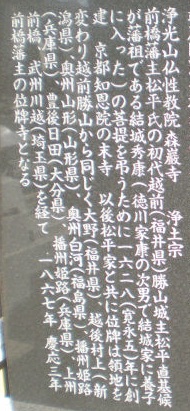 浄光山仏性教院森巌寺　浄土宗
前橋藩主松平氏の初代越前（福井県）勝山城主松平直基候
が藩祖である結城秀康（徳川家康の次男で結城家に養子
に入った）の菩提を弔うために一六二八（寛永五）年に創
建　京都知恩院の末寺　以後松平家と共に位牌は領地を
変わり越前勝山から同じく大野（福井県）　越後村上（新
潟県）奥州山形（山形県）　播州姫路
（兵庫県）　豊後日田（大分県）　奥州白河（福島県）　播州姫路（兵庫県）　上州
前橋　武州川越（埼玉県）を経て　一八六七年　慶応三年
前橋藩主の位牌寺となる